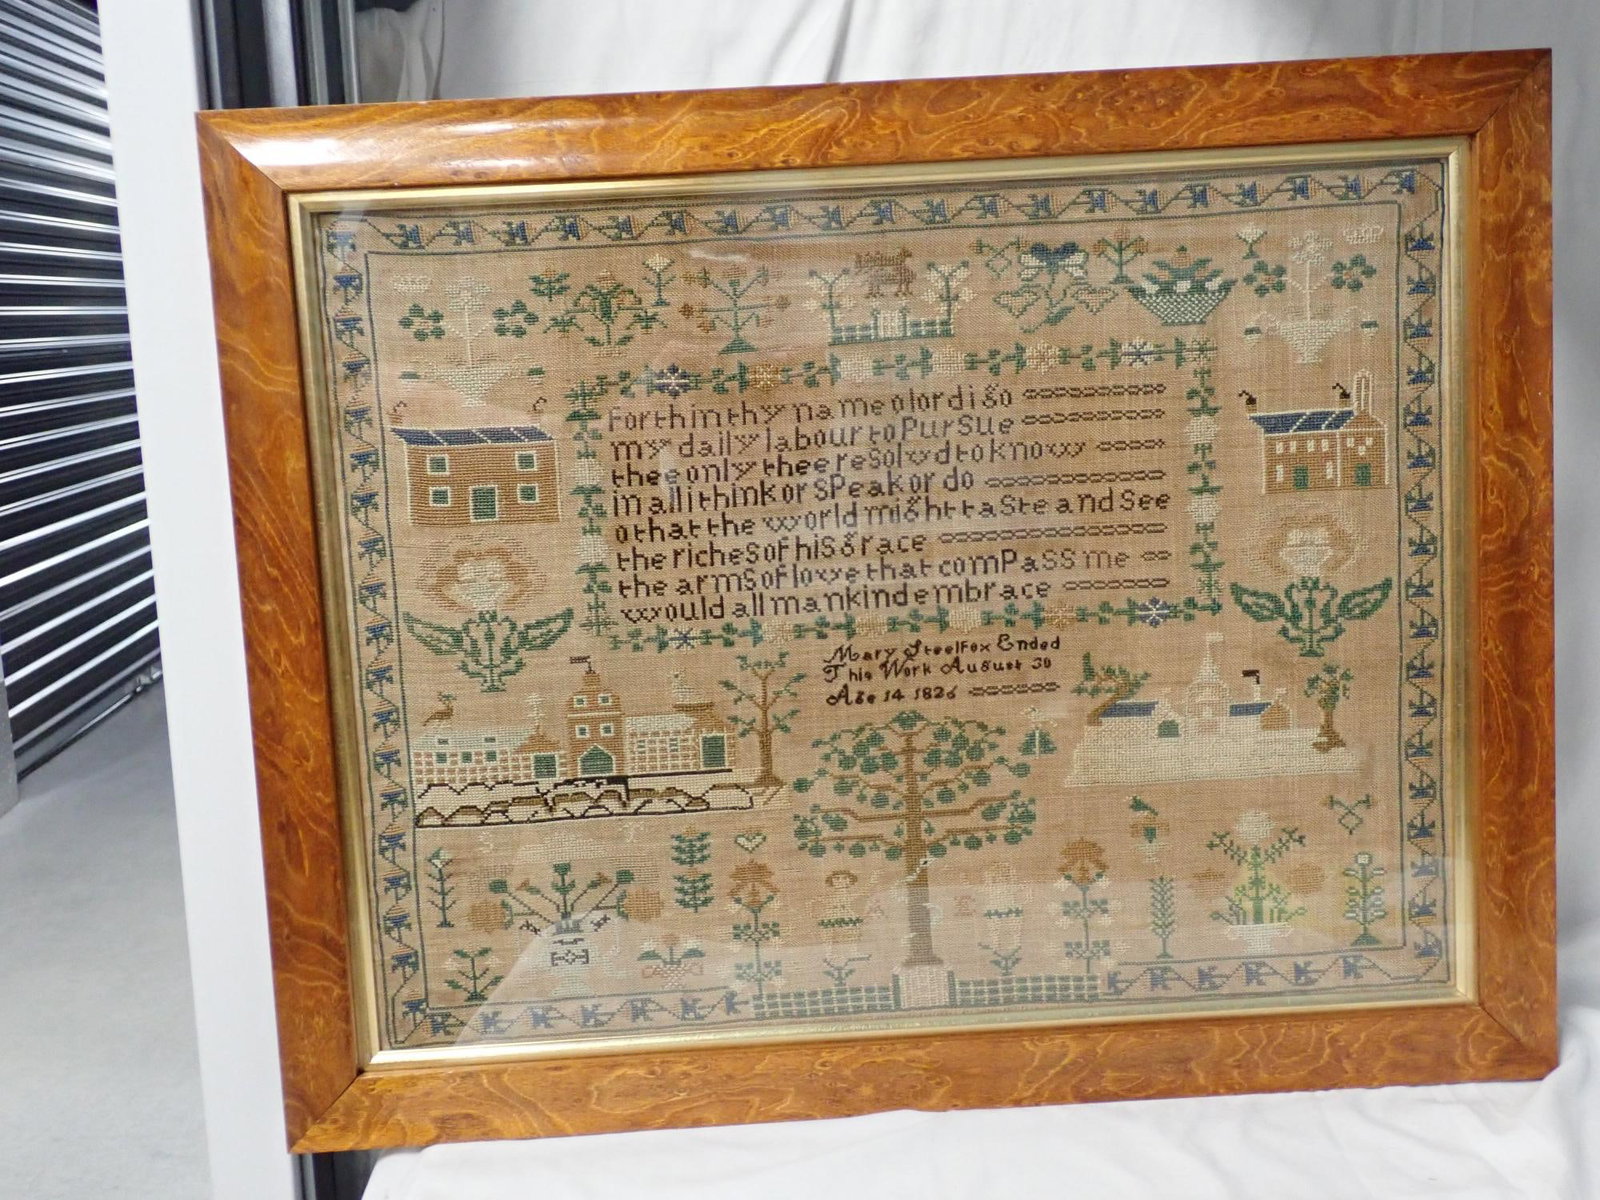 Forth in thy name o lord i go
my daily labour to PurSue
thee only thee reSolvd to know
in all i think or SPeak or do
o that the world might taSte and See
the richeS of hiS grace
the armS of love that comPaSS me
would all mankind embrace
Mary SteelFox Ended
This Work August 30
Age 14 1826
A E